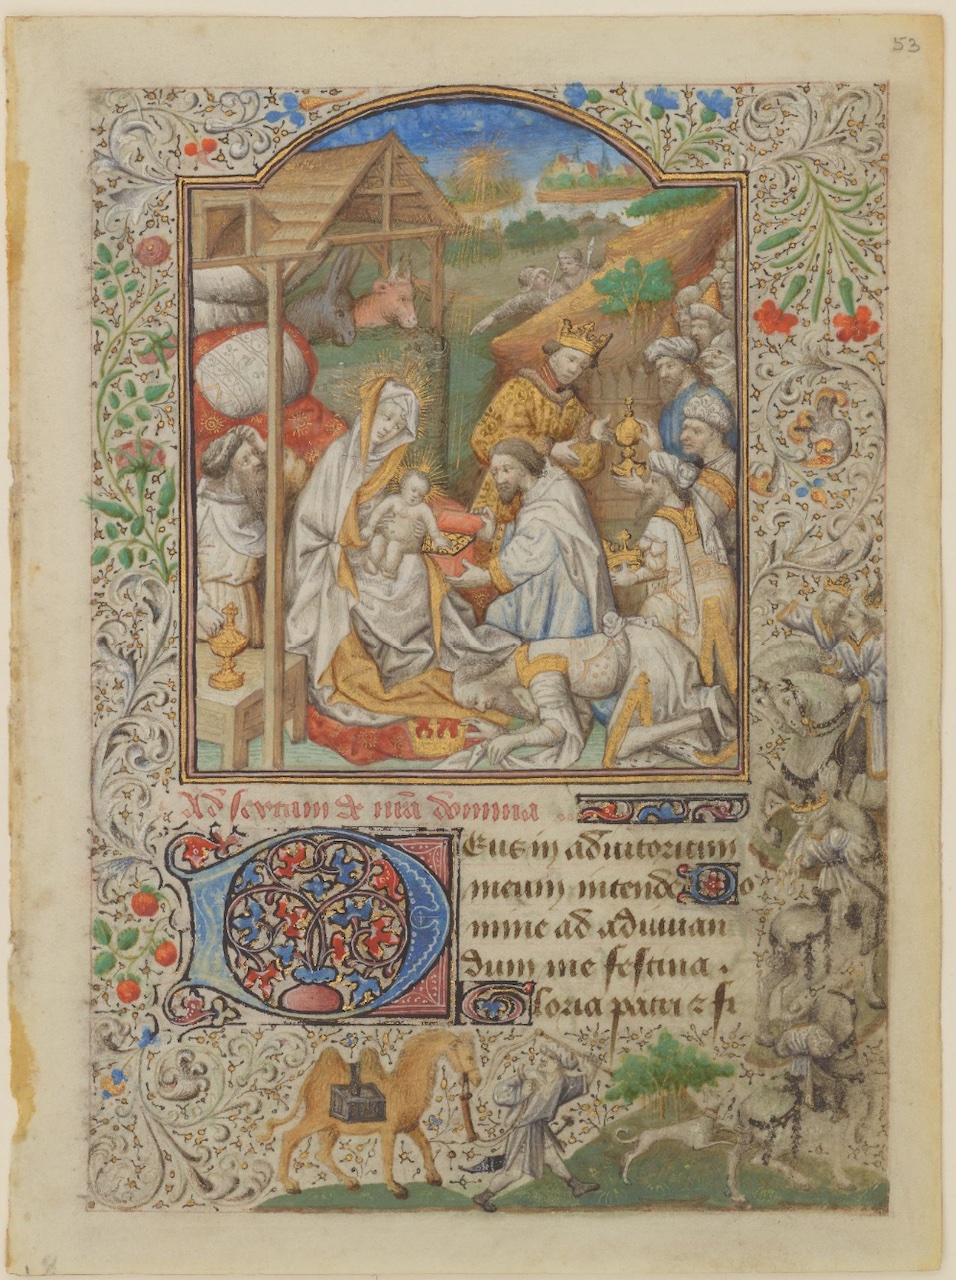 53
Ad sextam & n̄rā domina
Deus in adiutorium
meum intende Do
mine ad adiuuan
dum me festina .
Gloria patri ⁊ fi